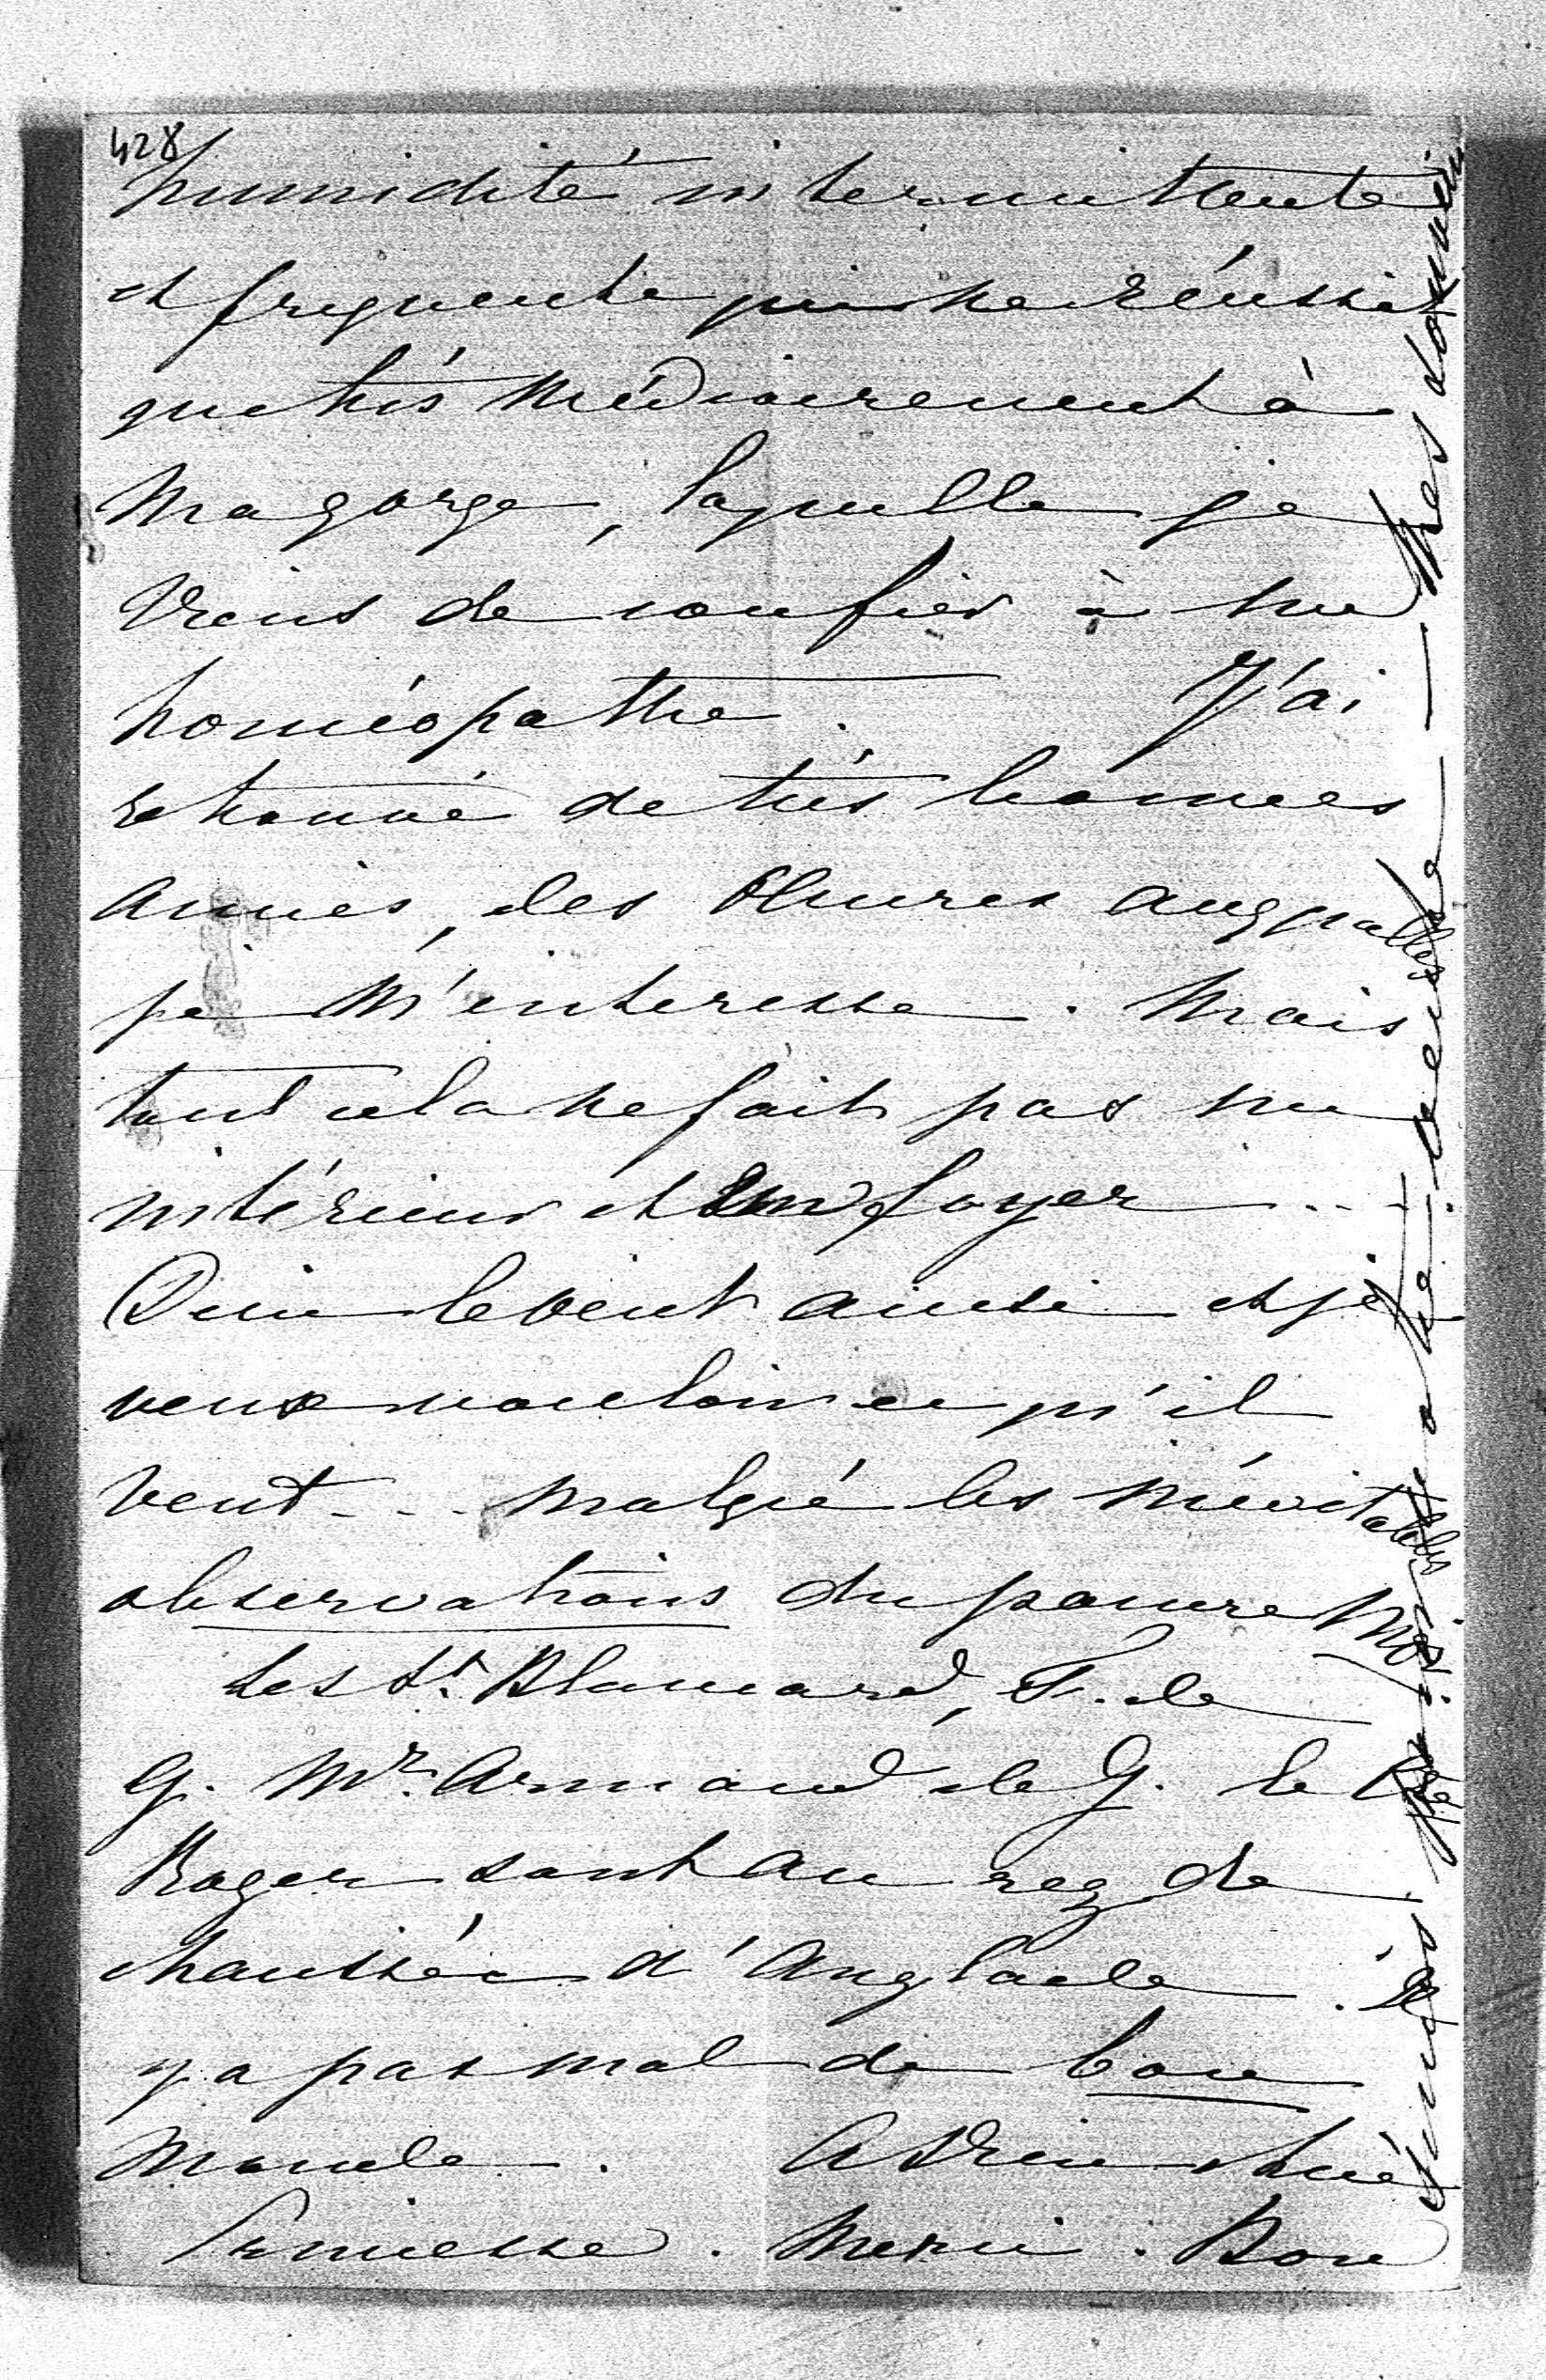 428
humidité intermittente
et frequente qui ne réussit
que très médiocrement à
ma gorge, laquelle je
viens de confier à un
homéopathe. J'ai
retrouvé de très bonnes
amies, des Œuvres auxquelles
je m'interesse. Mais
tout cela ne fait pas un
intérieur et un foyer....
Dieu le veut ainsi et je
veux vouloir ce qu'il
veut... malgré les inévitables
observations du pauvre moi.
Les St. Blancard, F. de
G. Mr. Armand de G. le Dr
Roger sont au rez de
chaussée d'Anglade. Il
y a pas mal de bon
monde. Adieu chère
Princesse. Merci. Bon
mes